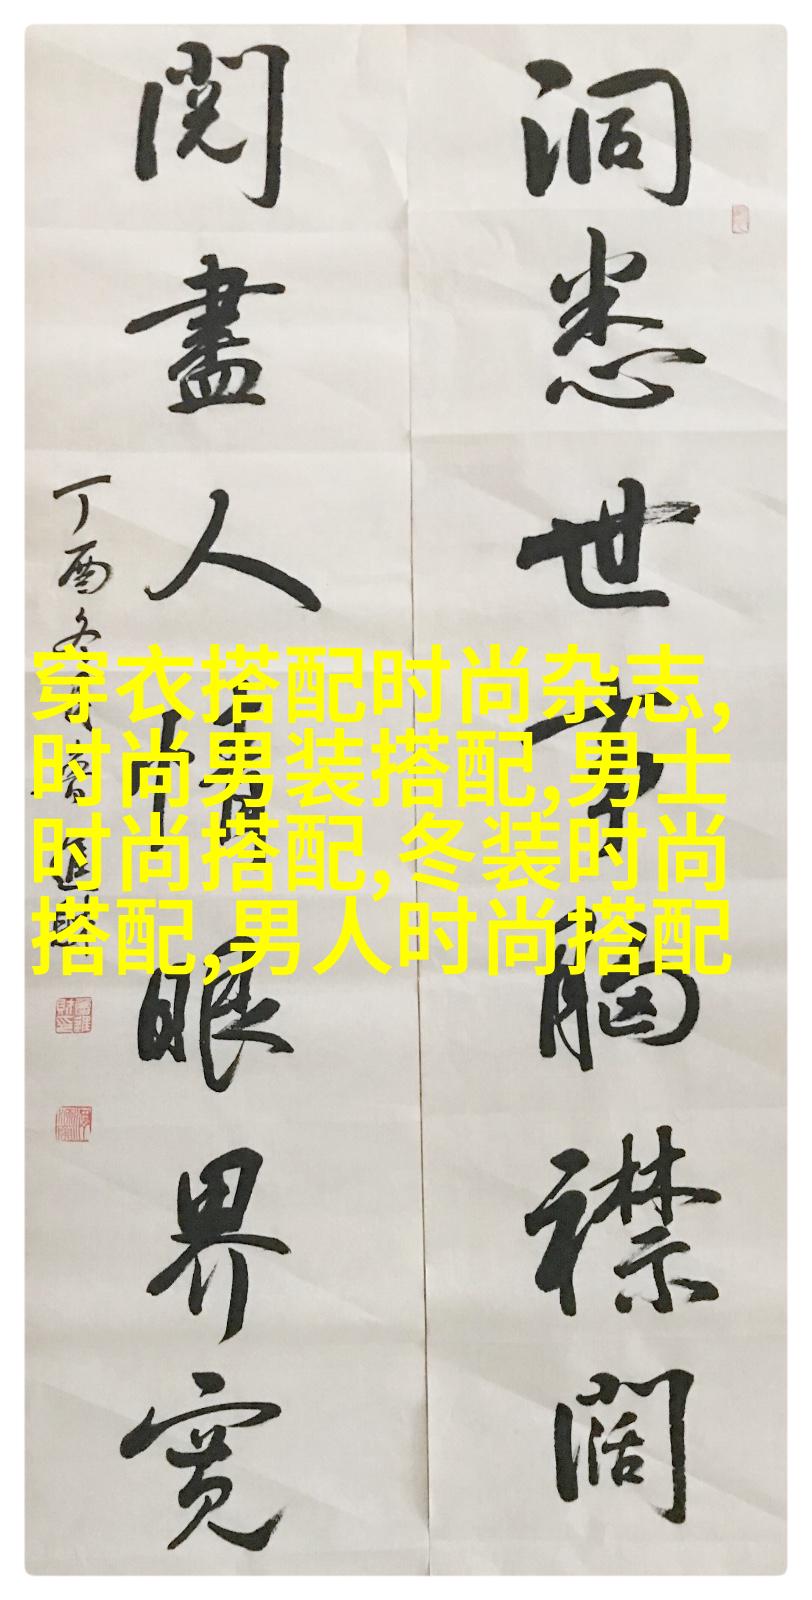 洞悉世事胸襟阔
閱盡人情眼界寬
丁酉冬月
穿衣搭配时尚杂志,
时尚男装搭配,男士
时尚搭配,冬装时尚
搭配,男人时尚搭配